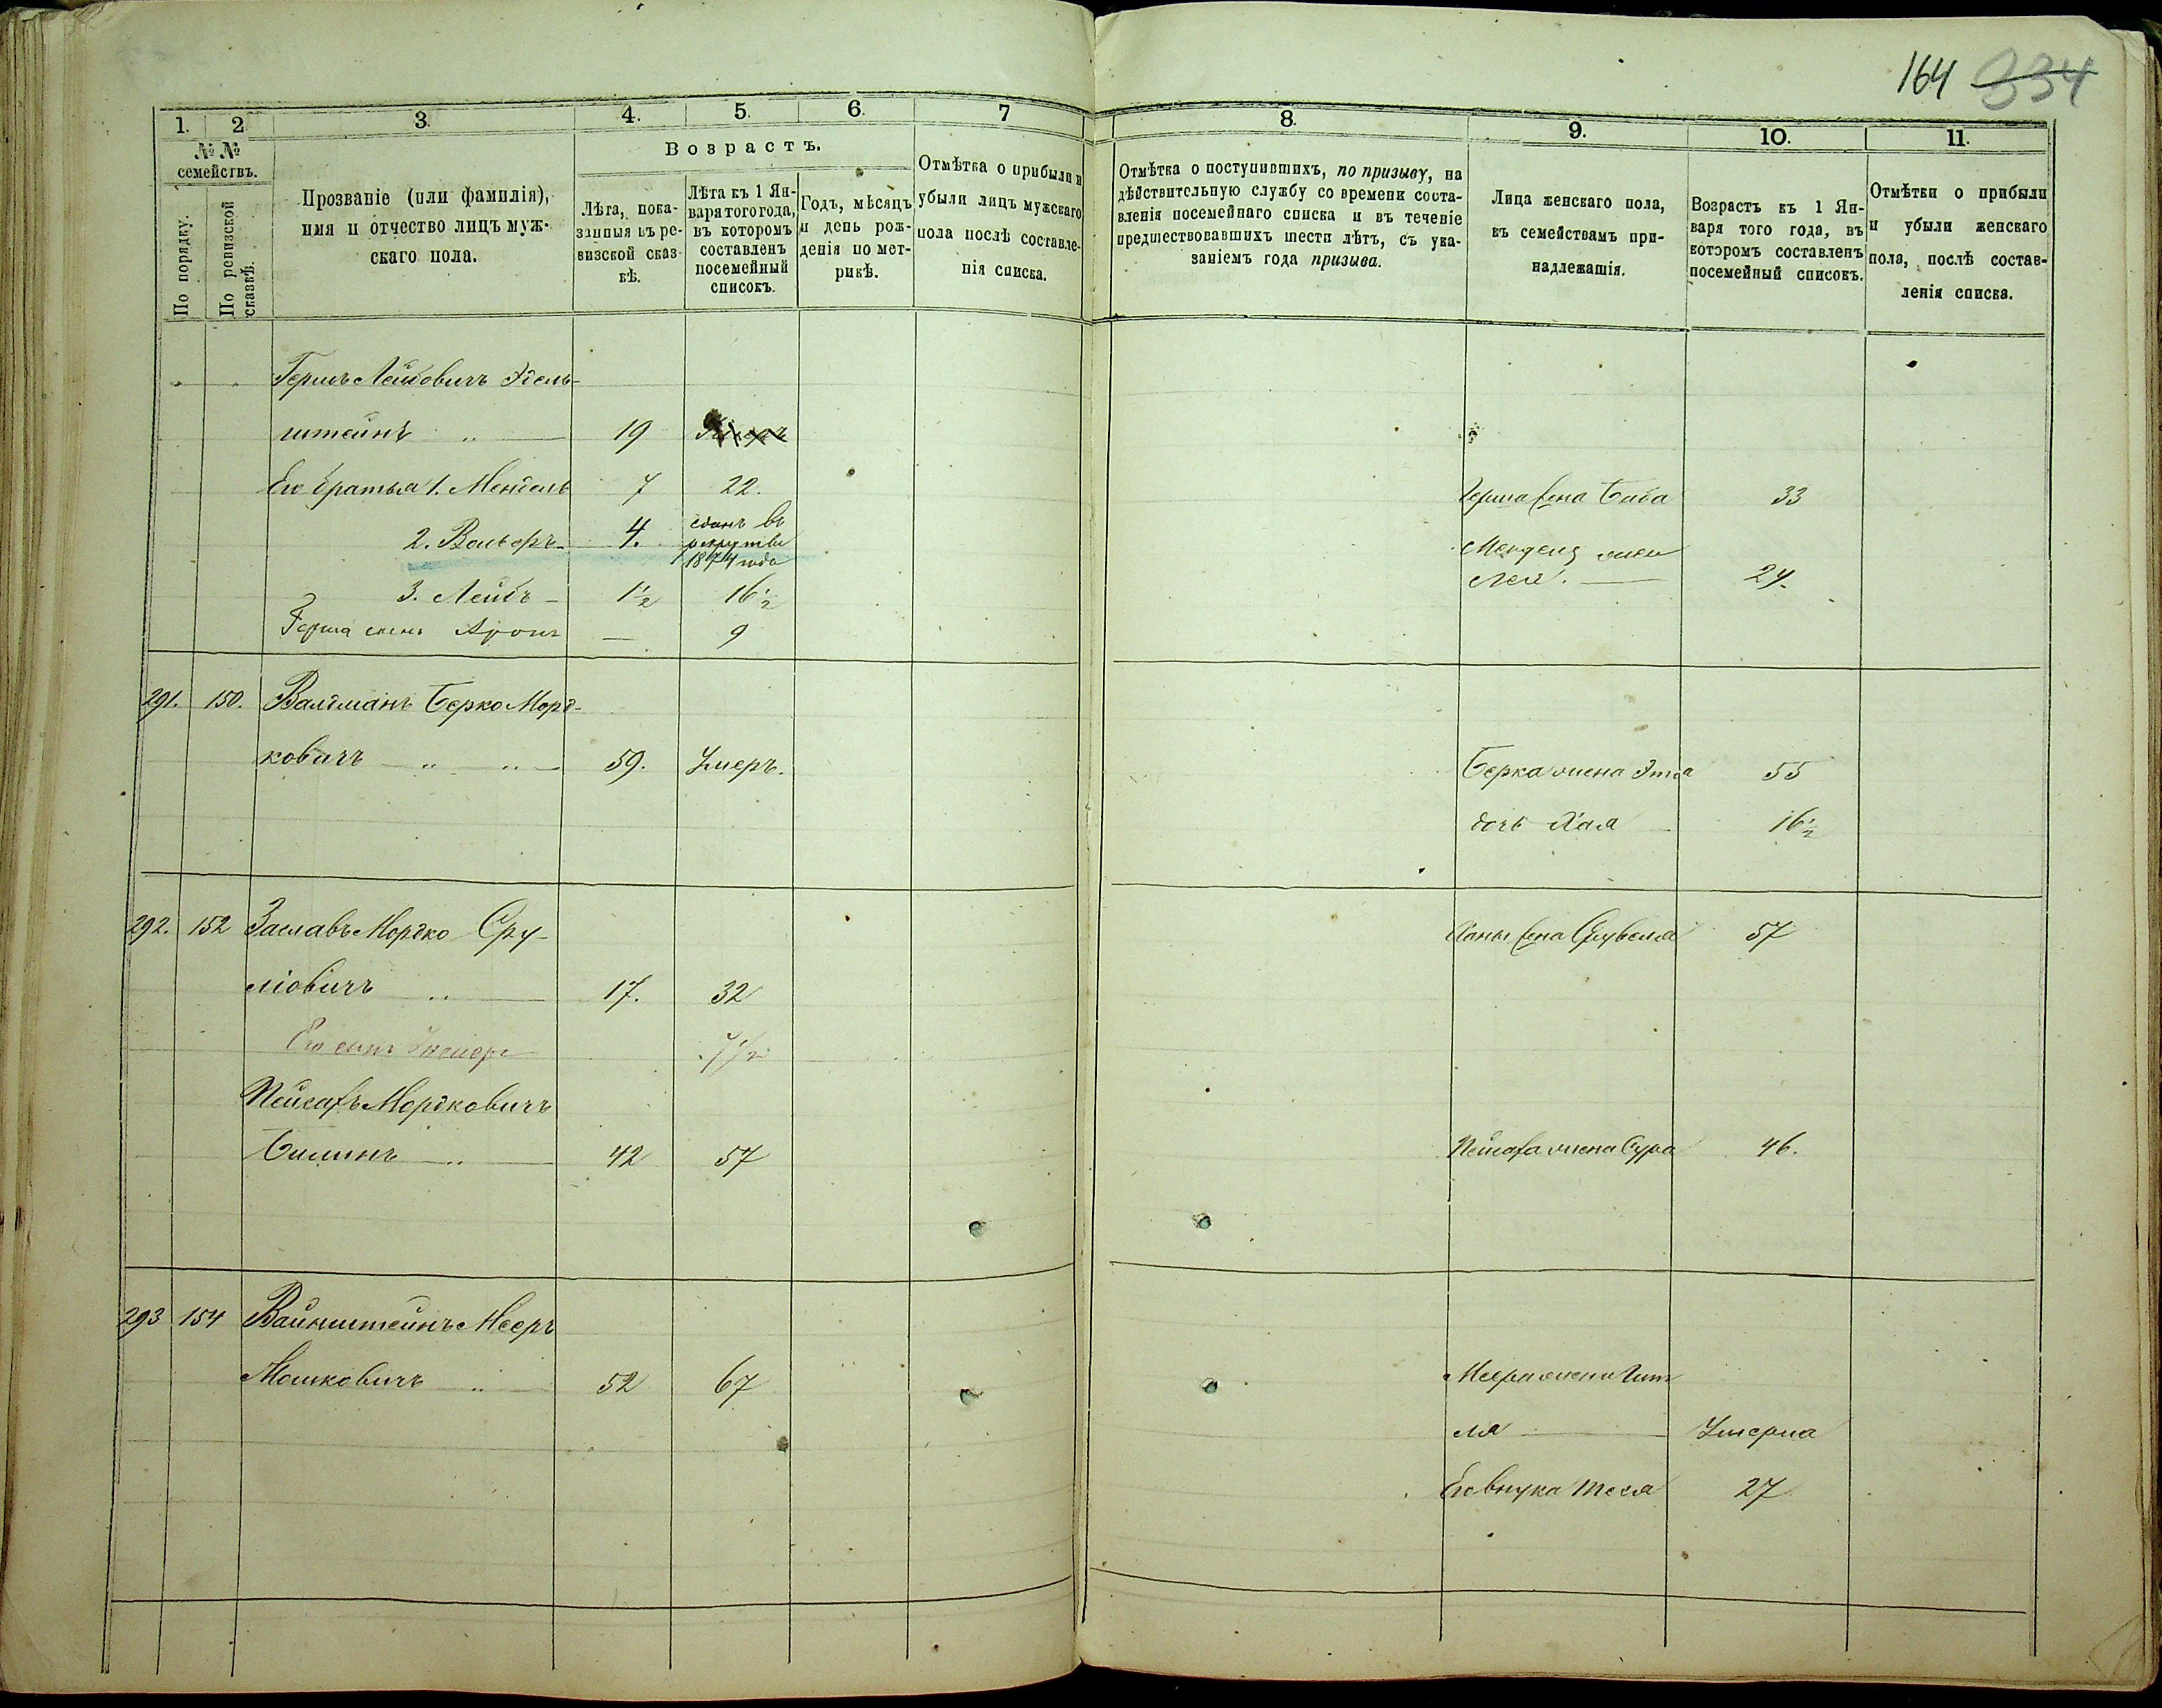 164 334
1. 2. 3. 4. 5. 6. 7
№ № семействъ.
По порядку.
По ревизской сказкѣ.
Прозваніе (или фамилія),
имя и отчество лицъ муж-
скаго пола.
Возрастъ.
Лѣта, пока-
занныя въ ре-
визской сказ-
кѣ.
Лѣта къ 1 Ян-
варя того года,
въ которомъ
составленъ
посемейный
списокъ.
Годъ, мѣсяцъ
и день рож-
денія по мет-
рикѣ.
Отмѣтка о прибыли и
убыли лицъ мужскаго
пола послѣ составле-
нія списка.
8. 9. 10. 11.
Отмѣтка о поступившихъ, по призыву, на
дѣйствительную службу со времени соста-
вленія посемейнаго списка и въ теченіе
предшествовавшихъ шести лѣтъ, съ ука-
заніемъ года призыва.
Лица женскаго пола,
къ семействамъ при-
надлежащія.
Возрастъ къ 1 Ян-
варя того года, въ
которомъ составленъ
посемейный списокъ.
Отмѣтки о прибыли
и убыли женскаго
пола, послѣ состав-
ленія списка.
Гершъ Лейбовичъ Эдель-
штейнъ 19 Умеръ
Его братья 1. Мендель 7 22.
2. Вольфъ 4. сданъ въ
рекруты
1874 года
3. Лейбъ 1½ 16½
Герша сынъ Аронъ — 9
Герша жена Баба 33
Менделя жена
Лея. 24.
291. 150. Валдманъ Берко Морд-
ковичъ 59. Умеръ.
Берка жена Этла 55
дочь Хая 16½
292. 152 Заславъ Мордко Сру-
ліовичъ 17. 32
Его сынъ 7½
Пейсахъ Мордковичъ
42 57
жена 57
Пейсаха жена Сура 46.
293 154 Вайнштейнъ Мееръ
Мошковичъ 52 67
Меера жена Гит
ля Умерла
Его внука Теся 27